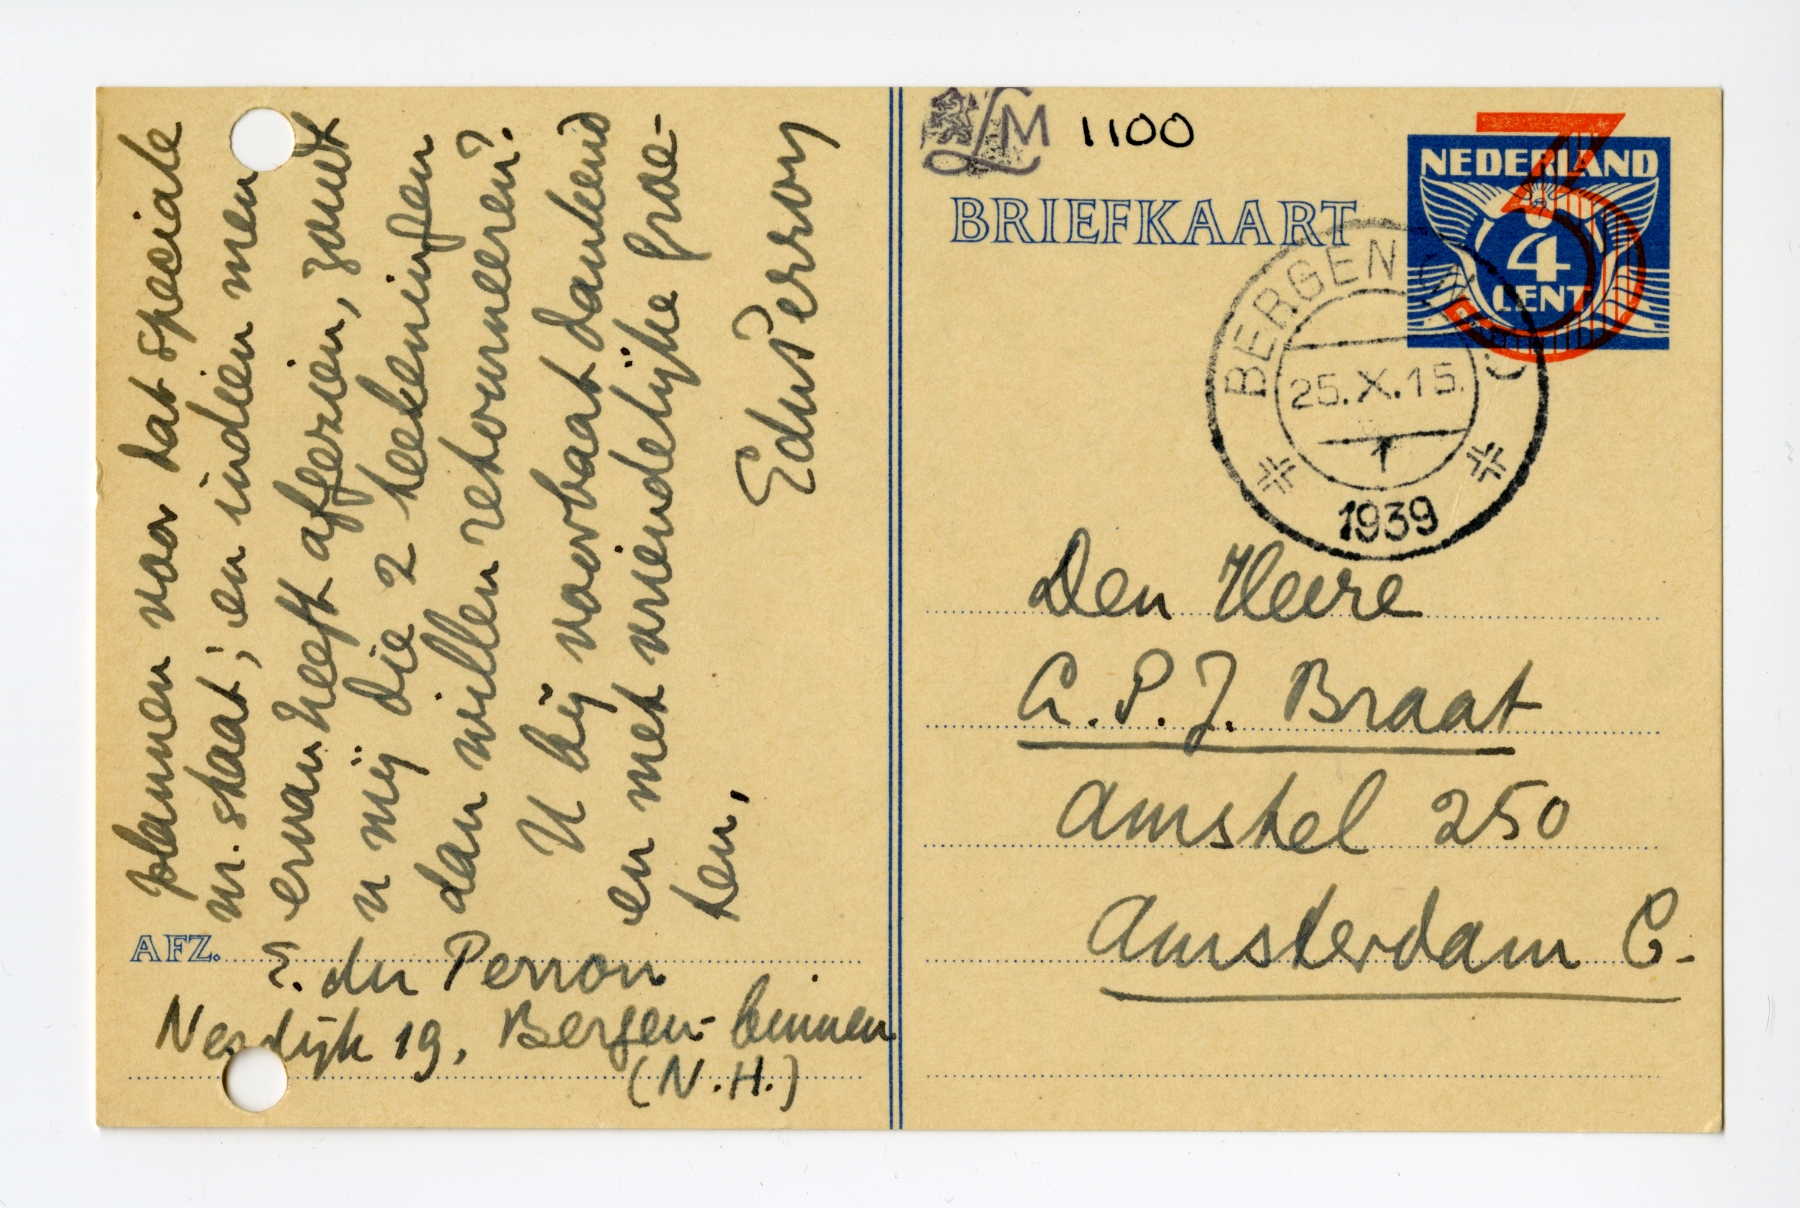 plannen voor dat speciale
nr. staat; en indien men
ervan heeft afgezien, zoudt
u mij die 2 teekeningen
dan willen retourneeren?
U bij voorbaat dankend
en met vriendelijke groe-
ten,
EduPerron
AFZ.
E. du Perron
Nesdijk 19, Bergen-binnen
(N.H.)
LM 1100
BRIEFKAART
NEDERLAND
4
CENT
3
BERGEN (N.H.)
25.X.15.
1939
Den Heere
A.P.J. Braat
Amstel 250
Amsterdam C.